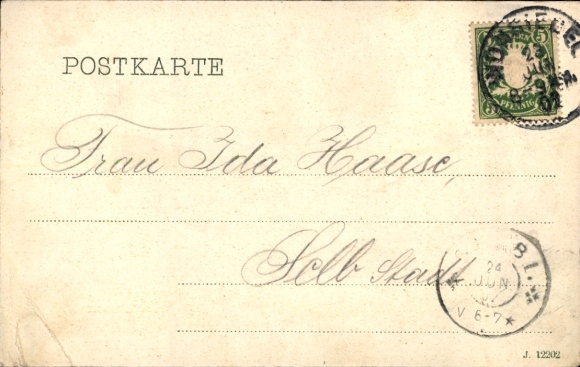 POSTKARTE
WUNSIEDEL
5
PFENNIG
Frau Ida Haase,
Selb Stadt
24
JUN
V. 6-7 ★
J. 12202